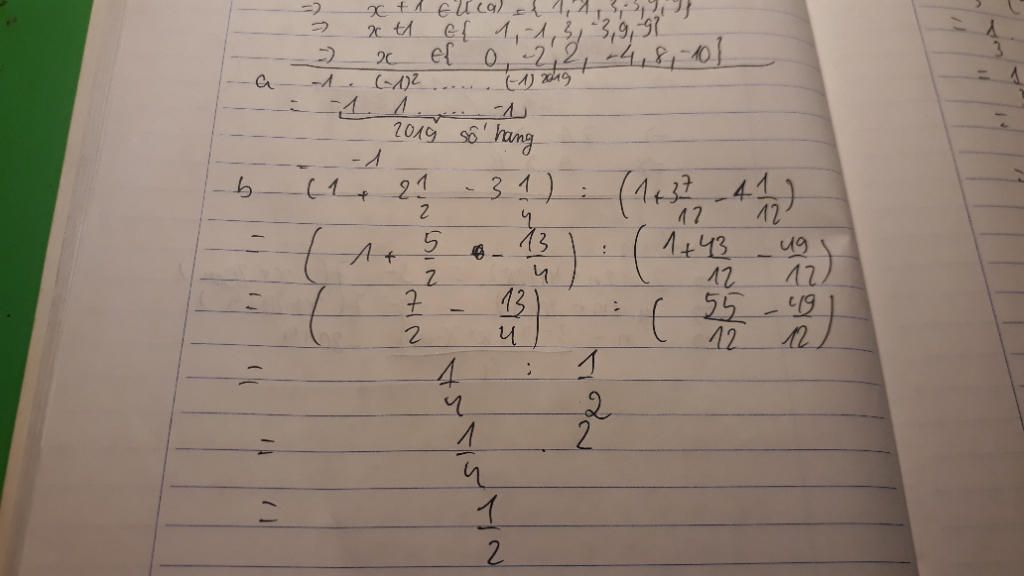 => x + 1 ∈ Ư(9) = { 1, -1, 3, -3, 9, -9}
=> x + 1 ∈ { 1, -1, 3, -3, 9, -9}
=> x ∈ { 0, -2, 2, -4, 8, -10}
a -1 . (-1)² ...... (-1)²⁰¹⁹
= -1 . 1 ...... -1
2019 số hạng
= -1
b (1 + 2 1/2 - 3 1/4) : (1 + 3 7/12 - 4 1/12)
= (1 + 5/2 - 13/4) : (1 + 43/12 - 49/12)
= (7/2 - 13/4) : (55/12 - 49/12)
= 1/4 : 1/2
= 1/4 . 2
= 1/2
= 1/3
= 1
=